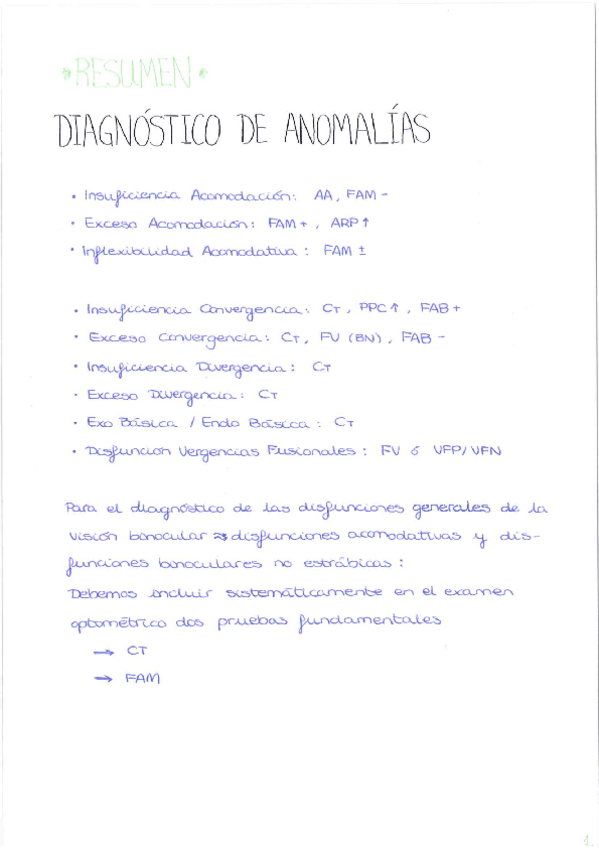 *RESUMEN*
DIAGNÓSTICO DE ANOMALÍAS
• Insuficiencia Acomodación: AA, FAM -
• Exceso Acomodación: FAM +, ARP↑
• Inflexibilidad Acomodativa: FAM ±
• Insuficiencia Convergencia: CT, PPC↑, FAB +
• Exceso Convergencia: CT, FV (BN), FAB -
• Insuficiencia Divergencia: CT
• Exceso Divergencia: CT
• Exo Básica / Endo Básica: CT
• Disfuncion Vergencias Fusionales: FV ó VFP/VFN
Para el diagnóstico de las disfunciones generales de la
visión binocular → disfunciones acomodativas y dis-
funciones binoculares no estrábicas:
Debemos incluir sistemáticamente en el examen
optométrico dos pruebas fundamentales
→ CT
→ FAM
1